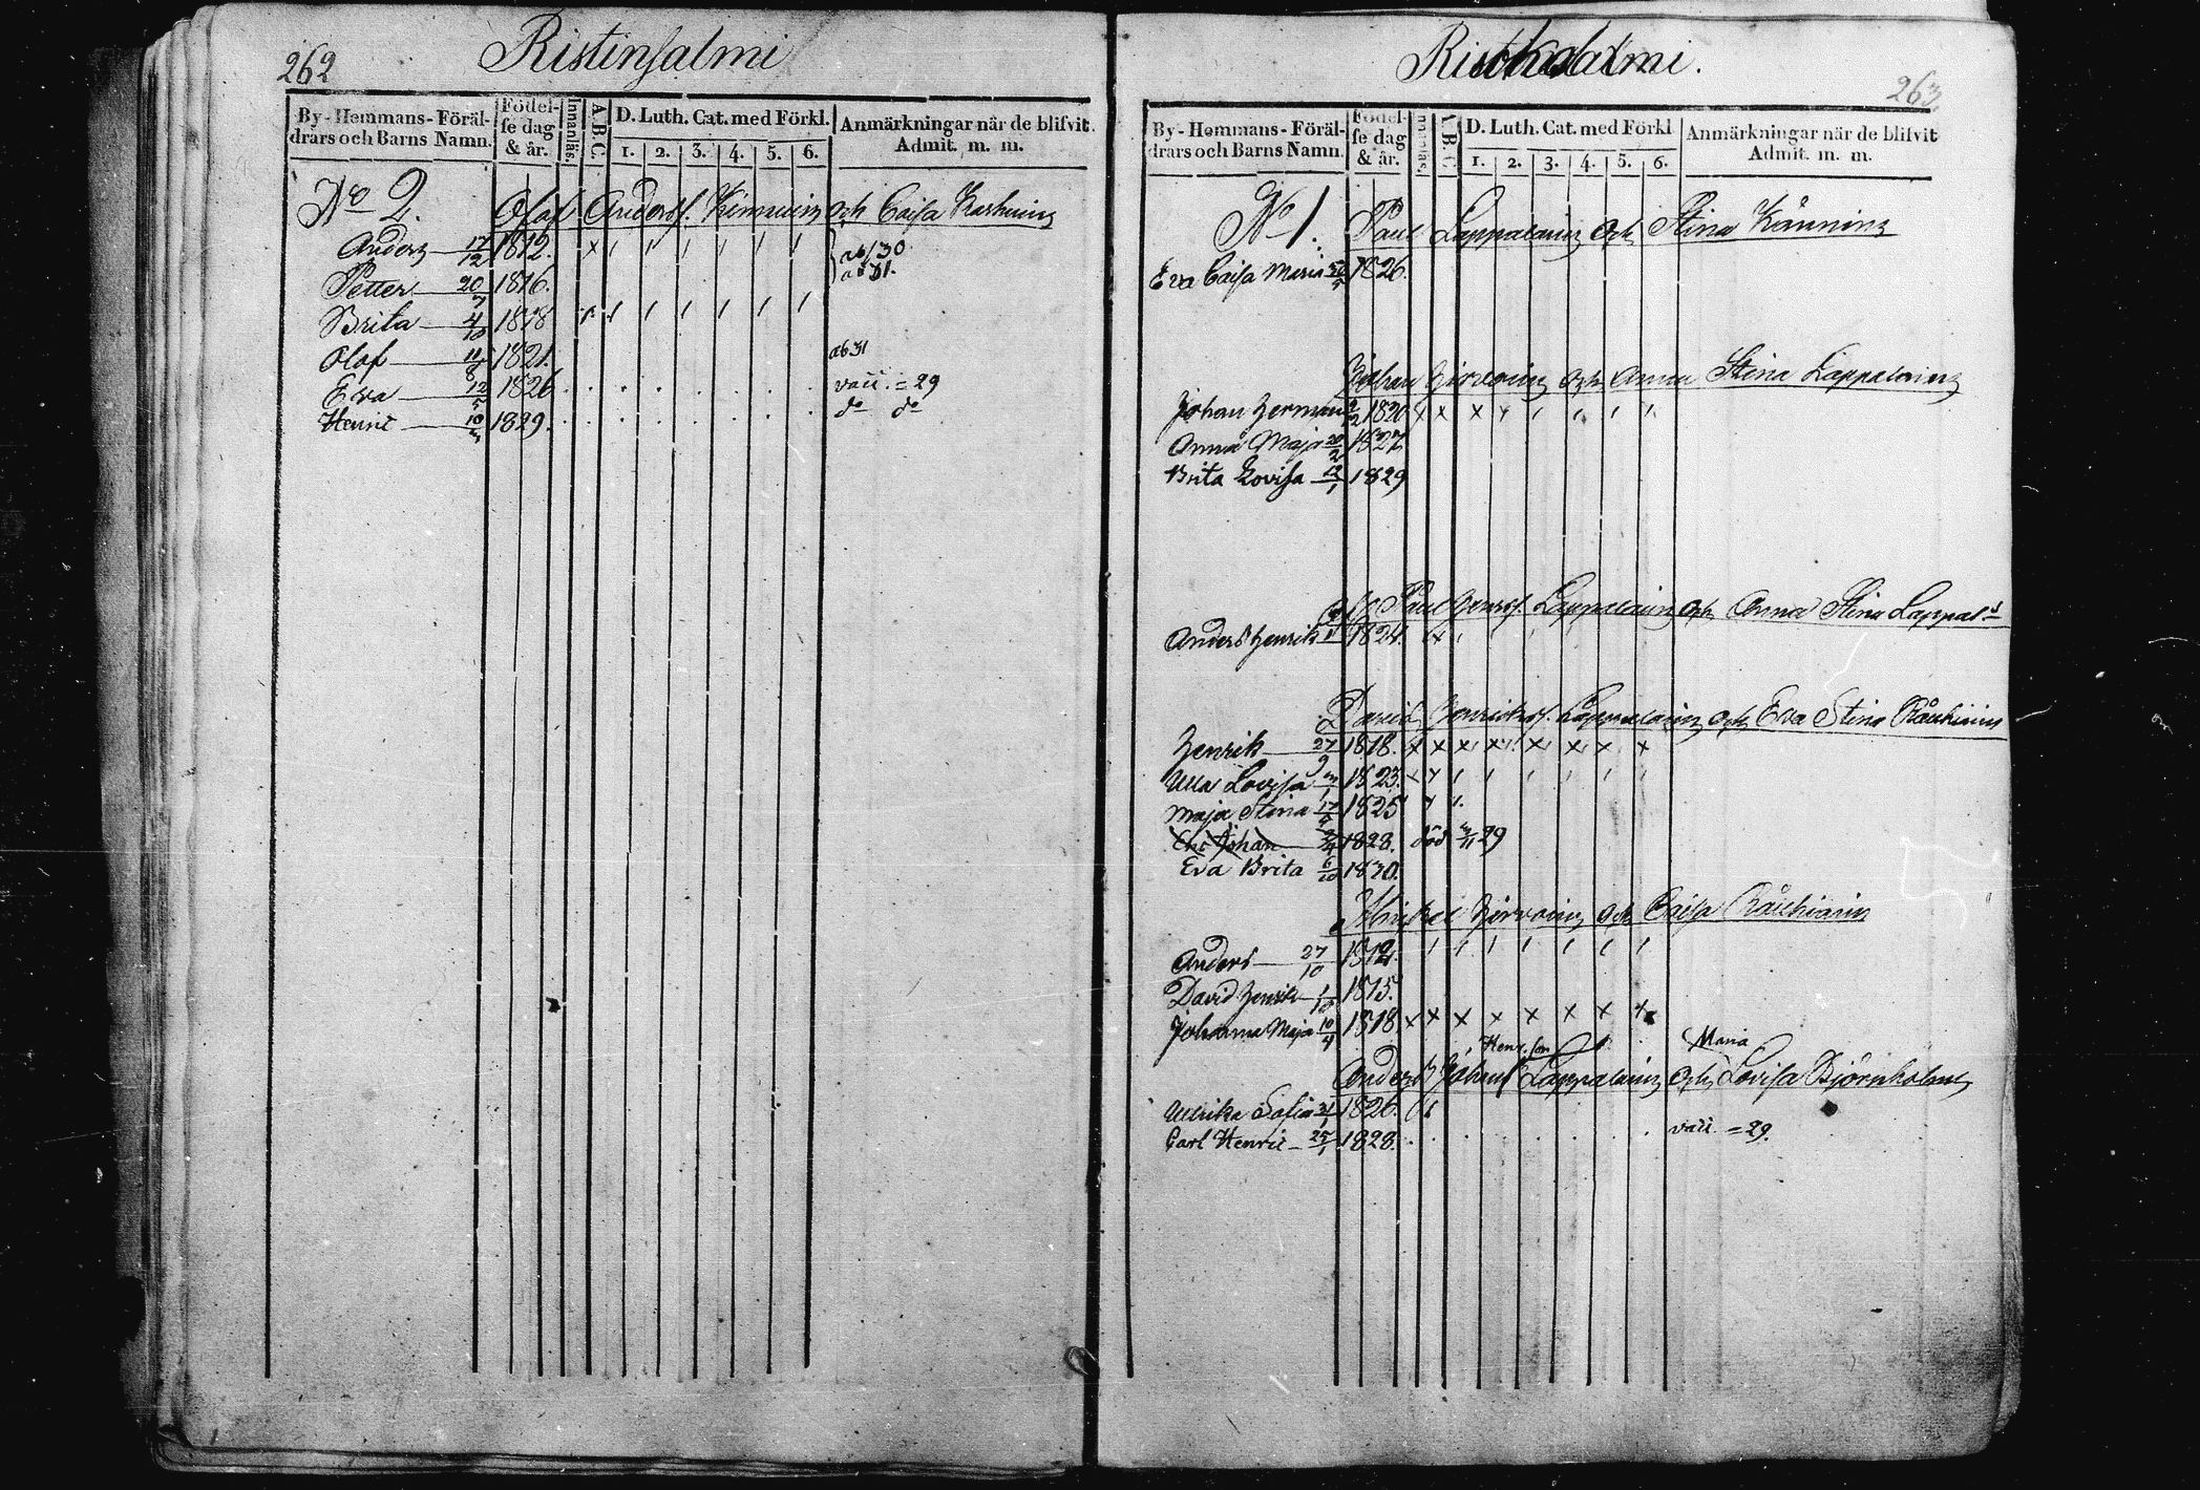 262
Ristinsalmi
By-Hemmans-Föräl-
drars och Barns Namn.
Födel-
se dag
& år.
Innanläs.
A.B.C.
D. Luth. Cat. med Förkl.
1. 2. 3. 4. 5. 6.
Anmärkningar när de blifvit
Admit. m. m.
No 2. Olaf Andersf. och Caisa
Anders 17/12 1812. x ab/30
Petter 20/7 1816. ab 31.
Brita 4/10 1818
Olaf 11/8 1821. ab 31
Eva 12/5 1826 vacc. = 29
Henric 10/3 1829. do do
263
salmi.
By-Hemmans-Föräl-
drars och Barns Namn.
Födel-
se dag
& år.
A.B.C.
D. Luth. Cat. med Förkl
1. 2. 3. 4. 5. 6.
Anmärkningar när de blifvit
Admit. m. m.
No 1. Paul Lappalain och Stina Känninen
Eva Caisa Maria 1826.
Johan Hirvoin och Anna Stina Lappalain
Johan Herman 1820 x x x x
Anna Maja 20/2 1827
Brita Lovisa 12/1 1829
Paul Henrsf. Lappalain och Anna Stina Lappal
Anders Henrik 1824. x
David Henriksf. Lappalain och Eva Stina
Henrik 27/9 1818. x x x x x x x x
Ulla Lovisa 1823.
Maja Stina 17/4 1825
Johan 1828. död 29
Eva Brita 6/10 1830.
Michel Hirvoin och Caisa
Anders 27/10 1812.
David Henrik 1815.
Johanna Maja 10/4 1818 x x x x x x x
Henr. son Maria
Anders Johans Lappalain och Lovisa Björnholm
Ulrika Sofia 1826.
Carl Henric 25/1 1828. vacc. = 29.